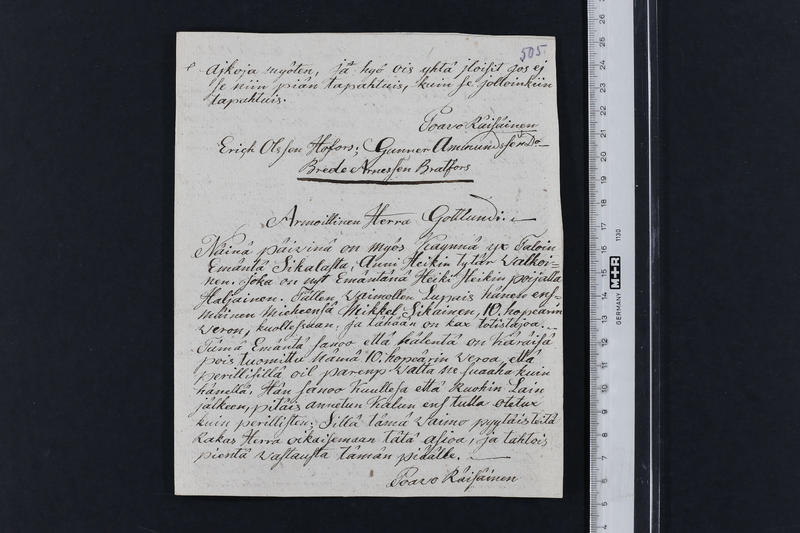 505
Aikoja myöten, jä hyö ois yhtä jloisit jos ej
se niin piän tapahtuis, kuin se jolloinkiin
tapahtuis.
Poavo Räisäinen
Erich Olssen Hofors; Gunner Amundssen Do
Brede Arnessen Bratfors
Armoillinen Herra Gottlundi
Näinä päivinä on myös käynnä yx Taloin
Emäntä Sikalasta, Anni Heikin tytär Valkoi-
nen. Joka on nyt Emäntänä Heiki Heikin poijalla
Haljainen. Tällen Vaimollen Lupais hänen ens-
mäinen Miehensä Mikkel Sikainen, 10. hopearin
veron, kuollessaan. Ja tähään on kax totistajoa.
Tämä Emäntä sanoo että hälentä on käräisä
pois tuomittu nämä 10. hopearin veroa, että
perillisillä oil paremp valta ne suaaha kuin
hänellä. Hän sanoo kuulleesa että Ruohin Lain
jälkeen, pitäis annetun kalun ens tulla otetux
kuin perillisten; Siitä tämä Vaimo pyytäis teitä
Rakas Herra oikaisemaan tätä asioa, ja tahtois
pientä vastausta tämän piäälle.
Poavo Räisäinen
26
25
24
23
22
21
20
19
18
17
16
15
14
13
12
11
10
9
8
7
6
5
4
1130
M+R
GERMANY